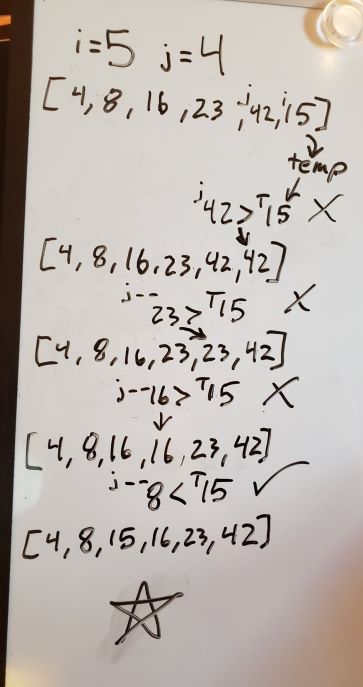 i=5 j=4
[4, 8, 16, 23, j 42, i 15]
temp
j 42 > T 15 X
[4, 8, 16, 23, 42, 42]
j-- 23 > T 15 X
[4, 8, 16, 23, 23, 42]
j-- 16 > T 15 X
[4, 8, 16, 16, 23, 42]
j-- 8 < T 15 ✓
[4, 8, 15, 16, 23, 42]